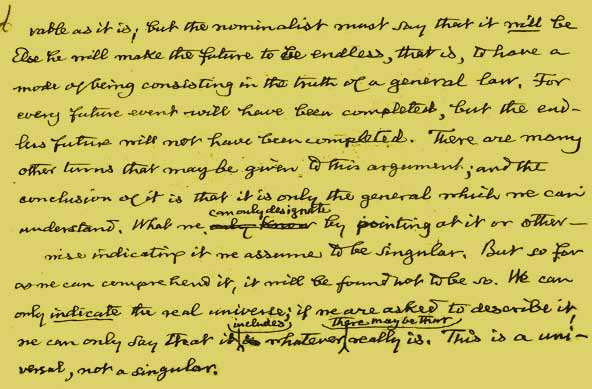 vable as it is; but the nominalist must say that it will be
Else he will make the future to be endless, that is, to have a
mode of being consisting in the truth of a general law. For
every future event will have been completed, but the end-
less future will not have been completed. There are many
other turns that may be given to this argument; and the
conclusion of it is that it is only the general which we can
can only designate
understand. What we only know by pointing at it or other-
wise indicating it we assume to be singular. But so far
as we can comprehend it, it will be found not to be so. We can
only indicate the real universe; if we are asked to describe it,
includes there may be that
we can only say that it is whatever really is. This is a uni-
versal, not a singular.